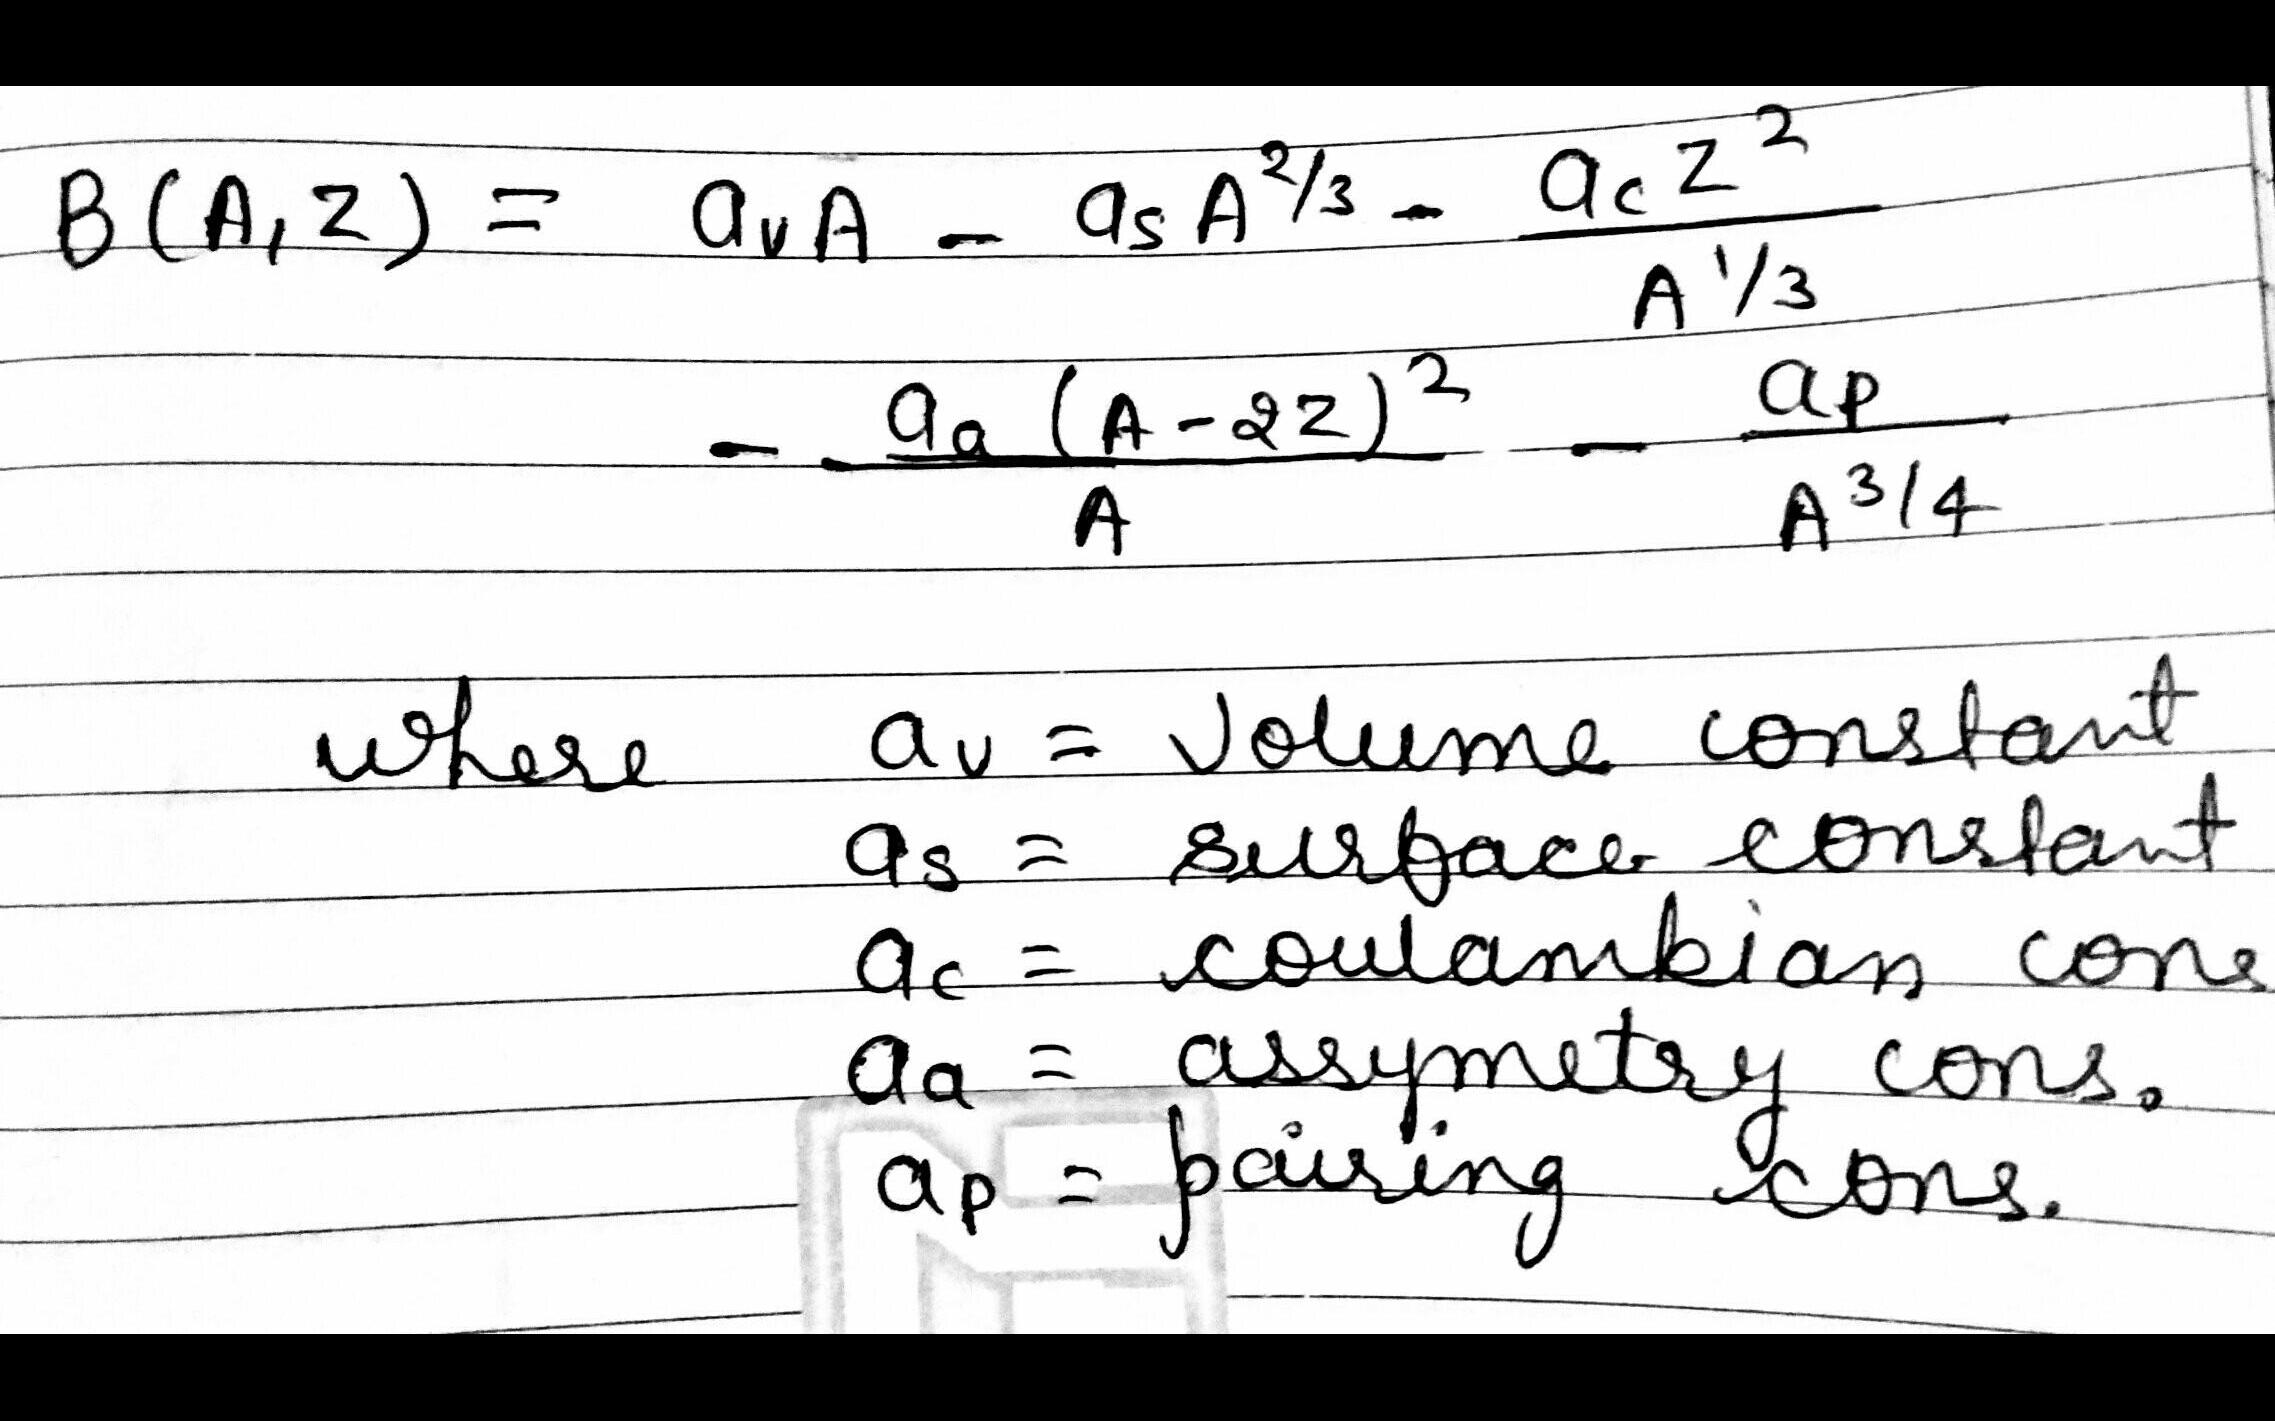 B(A,Z) = a_v A - a_s A^{2/3} - \frac{a_c Z^2}{A^{1/3}}
- \frac{a_a (A-2Z)^2}{A} - \frac{a_p}{A^{3/4}}
where a_v = volume constant
a_s = surface constant
a_c = coulambian cons
a_a = assymetry cons.
a_p = pairing cons.